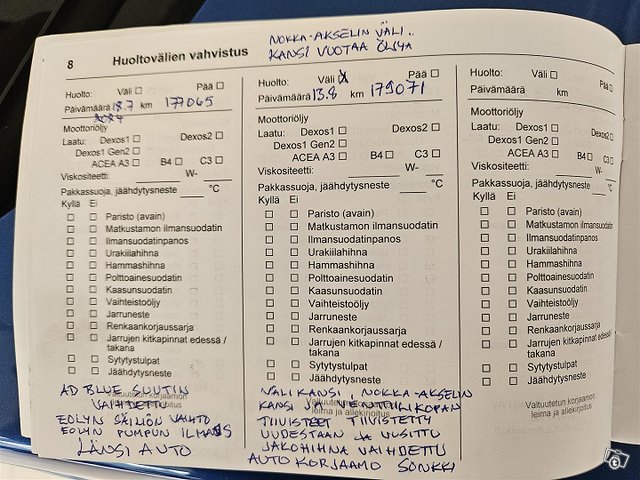 NOKKA-AKSELIN VÄLI..
KANSI VUOTAA ÖLJYÄ
8 Huoltovälien vahvistus
Huolto: Väli ☐ Pää ☐
Päivämäärä 18.7 km 177065
Moottoriöljy
Laatu: Dexos1 ☐ Dexos2 ☐
Dexos1 Gen2 ☐
ACEA A3 ☐ B4 ☐ C3 ☐
Viskositeetti: W-
Pakkassuoja, jäähdytysneste °C
Kyllä Ei
☐ ☐ Paristo (avain)
☐ ☐ Matkustamon ilmansuodatin
☐ ☐ Ilmansuodatinpanos
☐ ☐ Urakiilahihna
☐ ☐ Hammashihna
☐ ☐ Polttoainesuodatin
☐ ☐ Kaasunsuodatin
☐ ☐ Vaihteistoöljy
☐ ☐ Jarruneste
☐ ☐ Renkaankorjaussarja
☐ ☐ Jarrujen kitkapinnat edessä /
takana
☐ ☐ Sytytystulpat
☐ ☐ Jäähdytysneste
AD BLUE SUUTIN
VAIHDETTU
Valtuutetun korjaamon
EOLYN SÄILIÖN VAIHTO
EOLYN PUMPUN ILMAUS
LÄNSI AUTO
Huolto: Väli X Pää ☐
Päivämäärä 13.8 km 179071
Moottoriöljy
Laatu: Dexos1 ☐ Dexos2 ☐
Dexos1 Gen2 ☐
ACEA A3 ☐ B4 ☐ C3 ☐
Viskositeetti: W-
Pakkassuoja, jäähdytysneste °C
Kyllä Ei
☐ ☐ Paristo (avain)
☐ ☐ Matkustamon ilmansuodatin
☐ ☐ Ilmansuodatinpanos
☐ ☐ Urakiilahihna
☐ ☐ Hammashihna
☐ ☐ Polttoainesuodatin
☐ ☐ Kaasunsuodatin
☐ ☐ Vaihteistoöljy
☐ ☐ Jarruneste
☐ ☐ Renkaankorjaussarja
☐ ☐ Jarrujen kitkapinnat edessä /
takana
☐ ☐ Sytytystulpat
☐ ☐ Jäähdytysneste
VÄLIKANSI, NOKKA-AKSELIN
KANSI JA VENTTIILIKOPAN
Valtuutetun korjaamon
leima ja allekirjoitus
TIIVISTEET TIIVISTETTY
UUDESTAAN JA UUSITTU
JAKOHIHNA VAIHDETTU
AUTOKORJAAMO SONKKI
Huolto: Väli ☐ Pää ☐
Päivämäärä km
Moottoriöljy
Laatu: Dexos1 ☐ Dexos2 ☐
Dexos1 Gen2 ☐
ACEA A3 ☐ B4 ☐ C3 ☐
Viskositeetti: W-
Pakkassuoja, jäähdytysneste °C
Kyllä Ei
☐ ☐ Paristo (avain)
☐ ☐ Matkustamon ilmansuodatin
☐ ☐ Ilmansuodatinpanos
☐ ☐ Urakiilahihna
☐ ☐ Hammashihna
☐ ☐ Polttoainesuodatin
☐ ☐ Kaasunsuodatin
☐ ☐ Vaihteistoöljy
☐ ☐ Jarruneste
☐ ☐ Renkaankorjaussarja
☐ ☐ Jarrujen kitkapinnat edessä /
takana
☐ ☐ Sytytystulpat
☐ ☐ Jäähdytysneste
Valtuutetun korjaamon
leima ja allekirjoitus